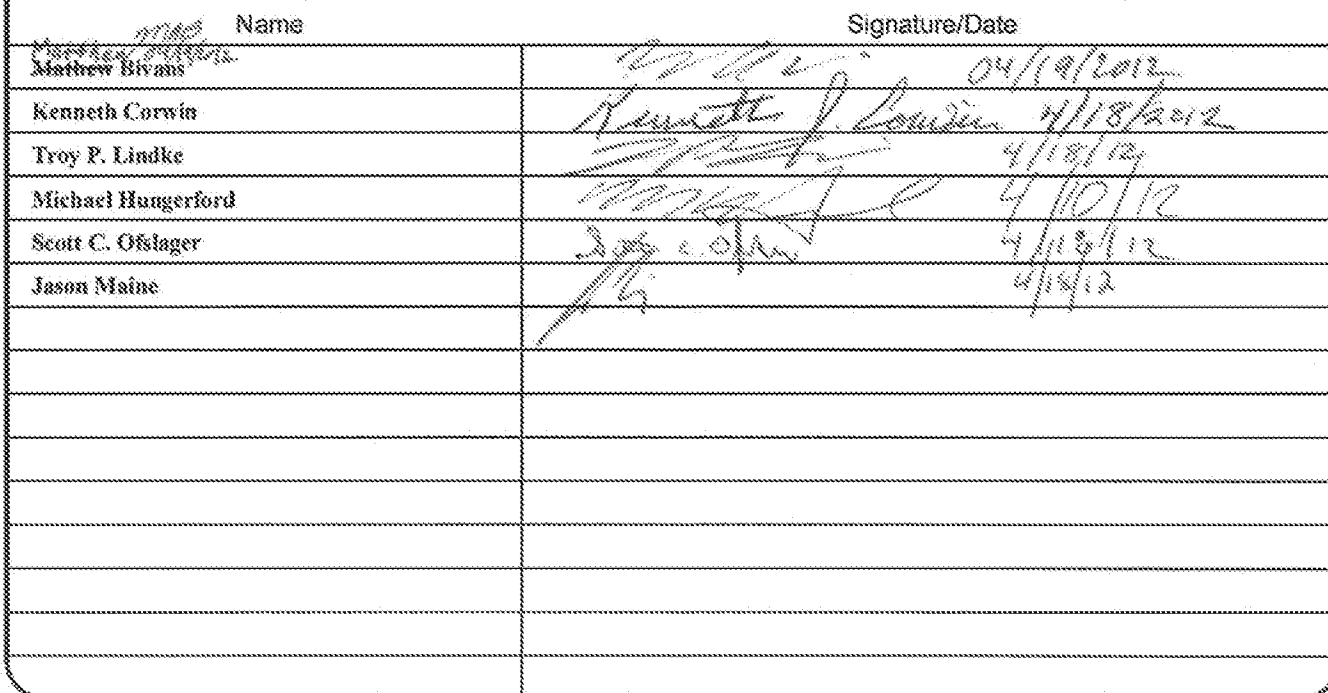 Name Signature/Date
Mathew Bivans 04/19/2012
Kenneth Corwin Kenneth J. Corwin 4/18/2012
Troy P. Lindke 4/18/12
Michael Hungerford 4/10/12
Scott C. Ofslager 4/18/12
Jason Maine 4/18/12